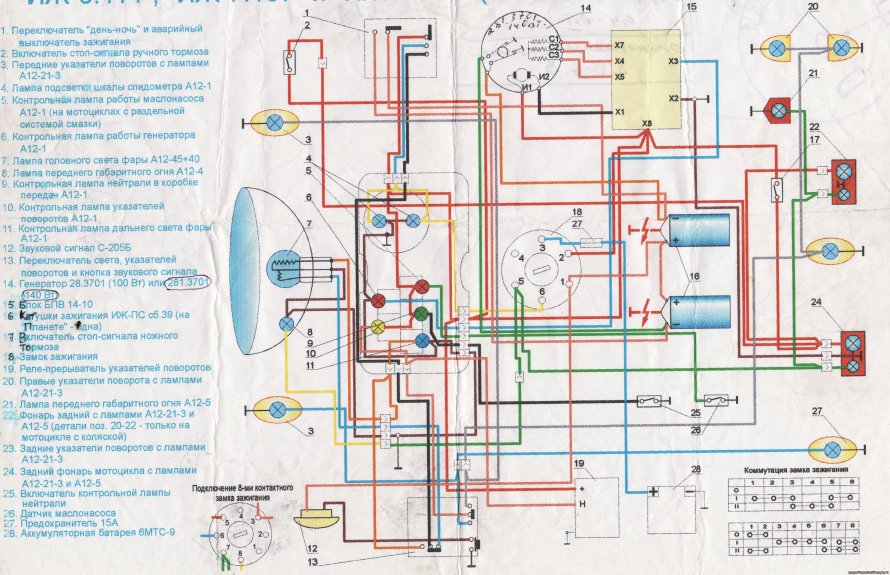 1. Переключатель "день-ночь" и аварийный
выключатель зажигания
2. Включатель стоп-сигнала ручного тормоза
3. Передние указатели поворотов с лампами
А12-21-3
4. Лампа подсветки шкалы спидометра А12-1
5. Контрольная лампа работы маслонасоса
А12-1 (на мотоциклах с раздельной
системой смазки)
6. Контрольная лампа работы генератора
А12-1
7. Лампа головного света фары А12-45+40
8. Лампа переднего габаритного огня А12-4
9. Контрольная лампа нейтрали в коробке
передач А12-1
10. Контрольная лампа указателей
поворотов А12-1
11. Контрольная лампа дальнего света фары
А12-1
12. Звуковой сигнал С-205Б
13. Переключатель света, указателей
поворотов и кнопка звукового сигнала
14. Генератор 28.3701 (100 Вт) или 281.3701
(140 Вт)
Блок БПВ 14-10
Катушки зажигания ИЖ-ПС сб.39 (на
Планете" - одна)
Включатель стоп-сигнала ножного
тормоза
18. Замок зажигания
19. Реле-прерыватель указателей поворотов
20. Правые указатели поворота с лампами
А12-21-3
21. Лампа переднего габаритного огня А12-5
22. Фонарь задний с лампами А12-21-3 и
А12-5 (детали поз. 20-22 - только на
мотоцикле с коляской)
23. Задние указатели поворотов с лампами
А12-21-3
24. Задний фонарь мотоцикла с лампами
А12-21-3 и А12-5
25. Включатель контрольной лампы
нейтрали
26. Датчик маслонасоса
27. Предохранитель 15А
28. Аккумуляторная батарея 6МТС-9
1
2
3
4
5
6
7
8
9
10
11
3
12
13
14
281.3701
140Вт
С1
С2
С3
И1
И2
15
X7
X4
X5
X1
X3
X2
X8
16
17
18
27
3
2
4
1
5
6
19
+
Н
20
21
22
24
25
26
27
28
+
−
Подключение 8-ми контактного
замка зажигания
4
5
3
6
2
7
1
8
Коммутация замка зажигания
1 2 3 4 5 6
0
I
II
1 2 3 4 5 6 7 8
0
I
II